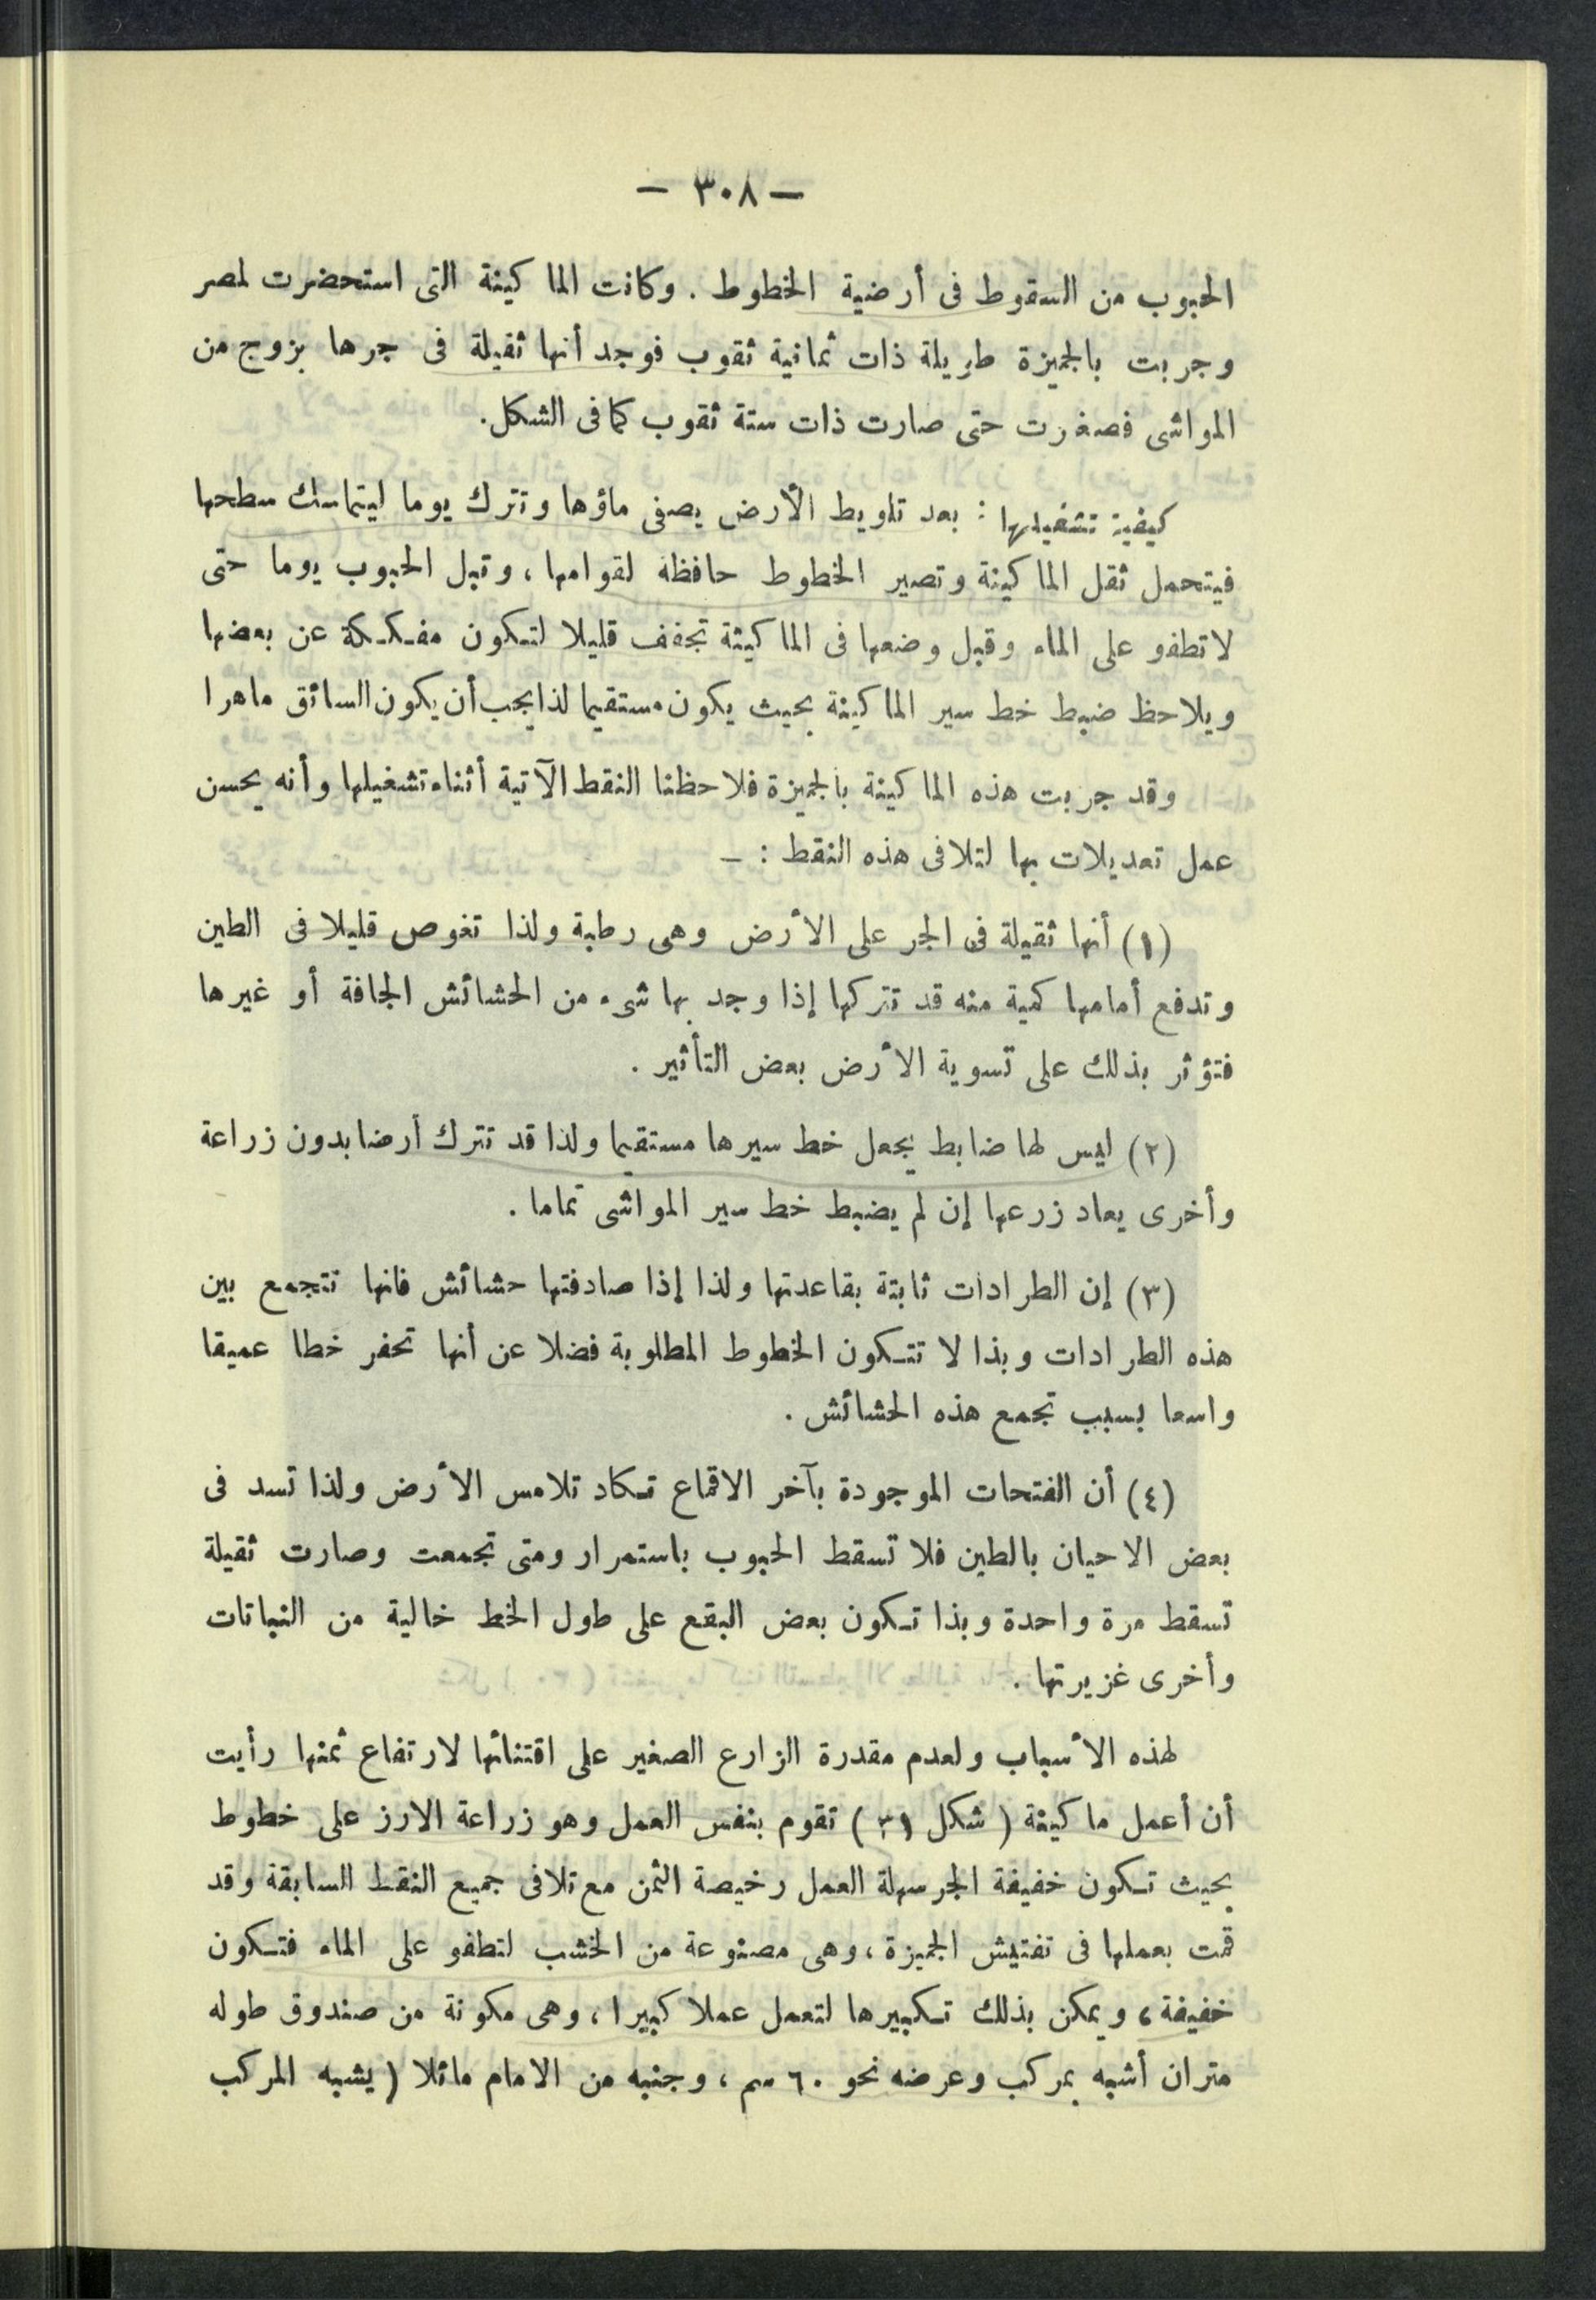 — ٣٠٨ —
الحبوب من السقوط فى أرضية الخطوط . وكانت الماكينة التى استحضرت لمصر
وجربت بالجميزة طويلة ذات ثمانية ثقوب فوجد أنها ثقيلة فى جرها بزوج من
المواشى فصغرت حتى صارت ذات ستة ثقوب كما فى الشكل.
كيفية تشغيلها : بعد تلويط الأرض يصفى ماؤها وتترك يوما ليتماسك سطحها
فيتحمل ثقل الماكينة وتصير الخطوط حافظة لقوامها ، وتبل الحبوب يوما حتى
لا تطفو على الماء وقبل وضعها فى الماكينة تجفف قليلا لتكون مفككة عن بعضها
ويلاحظ ضبط خط سير الماكينة بحيث يكون مستقيما لذا يجب أن يكون السائق ماهرا
وقد جربت هذه الماكينة بالجميزة فلاحظنا النقط الآتية أثناء تشغيلها وأنه يحسن
عمل تعديلات بها لتلافى هذه النقط : —
(١) أنها ثقيلة فى الجر على الأرض وهى رطبة ولذا تغوص قليلا فى الطين
وتدفع أمامها كمية منه قد تتركها إذا وجد بها شىء من الحشائش الجافة أو غيرها
فتؤثر بذلك على تسوية الأرض بعض التأثير .
(٢) ليس لها ضابط يجعل خط سيرها مستقيما ولذا قد تترك أرضا بدون زراعة
وأخرى يعاد زرعها إن لم يضبط خط سير المواشى تماما .
(٣) إن الطرادات ثابتة بقاعدتها ولذا إذا صادفتها حشائش فانها تتجمع بين
هذه الطرادات وبذا لا تتكون الخطوط المطلوبة فضلا عن أنها تحفر خطا عميقا
واسعا بسبب تجمع هذه الحشائش .
(٤) أن الفتحات الموجودة بآخر الاقماع تكاد تلامس الأرض ولذا تسد فى
بعض الاحيان بالطين فلا تسقط الحبوب باستمرار ومتى تجمعت وصارت ثقيلة
تسقط مرة واحدة وبذا تكون بعض البقع على طول الخط خالية من النباتات
وأخرى غزيرتها .
لهذه الأسباب ولعدم مقدرة الزارع الصغير على اقتنائها لارتفاع ثمنها رأيت
أن أعمل ماكينة ( شكل ٣١ ) تقوم بنفس العمل وهو زراعة الارز على خطوط
بحيث تكون خفيفة الجر سهلة العمل رخيصة الثمن مع تلافى جميع النقط السابقة وقد
قمت بعملها فى تفتيش الجميزة ، وهى مصنوعة من الخشب لتطفو على الماء فتكون
خفيفة ، ويمكن بذلك تكبيرها لتعمل عملا كبيرا ، وهى مكونة من صندوق طوله
متران أشبه بمركب وعرضه نحو ٦٠ سم ، وجنبه من الامام مائلا ( يشبه المركب